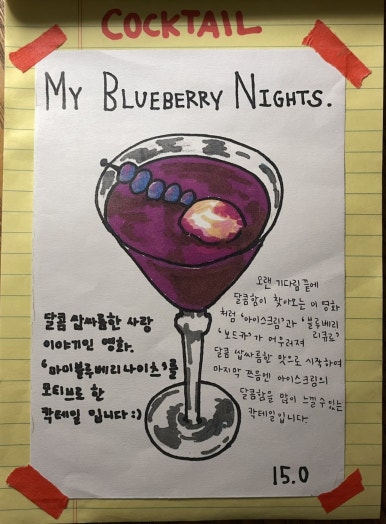 COCKTAIL
MY BLUEBERRY NIGHTS.
달콤 쌉싸름한 사랑
이야기인 영화.
'마이블루베리나이츠'를
모티브로 한
칵테일 입니다:)
오랜 기다림 끝에
달콤함이 찾아오는 이 영화
처럼 '아이스크림'과 '블루베리
리큐르'
'보드카'가 어우러져
달콤 쌉싸름한 맛으로 시작하여
마지막 쯤음엔 아이스크림의
달콤함을 많이 느낄 수 있는
칵테일입니다.
15.0